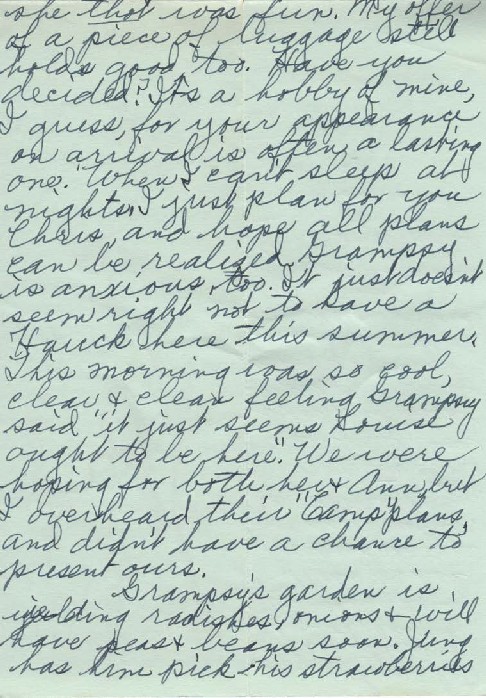 she that was fun. My offer
of a piece of luggage still
holds good too. Have you
decided? It's a hobby of mine,
I guess, for your appearance
on arrival is often a lasting
one. When I can't sleep at
nights, I just plan for you
Chris, and hope all plans
can be realized. Grampsy
is anxious, too. It just doesn't
seem right not to have a
Hauck here this summer.
This morning was so cool,
clear & clean feeling Grampsy
said "it just seems Louise
ought to be here". We were
hoping for both her & Ann, but
I overheard their "Camp" plans,
and didn't have a chance to
present ours.
Grampsy's garden is
yielding radishes, onions & will
have peas & beans soon. Jung
has him pick his strawberries